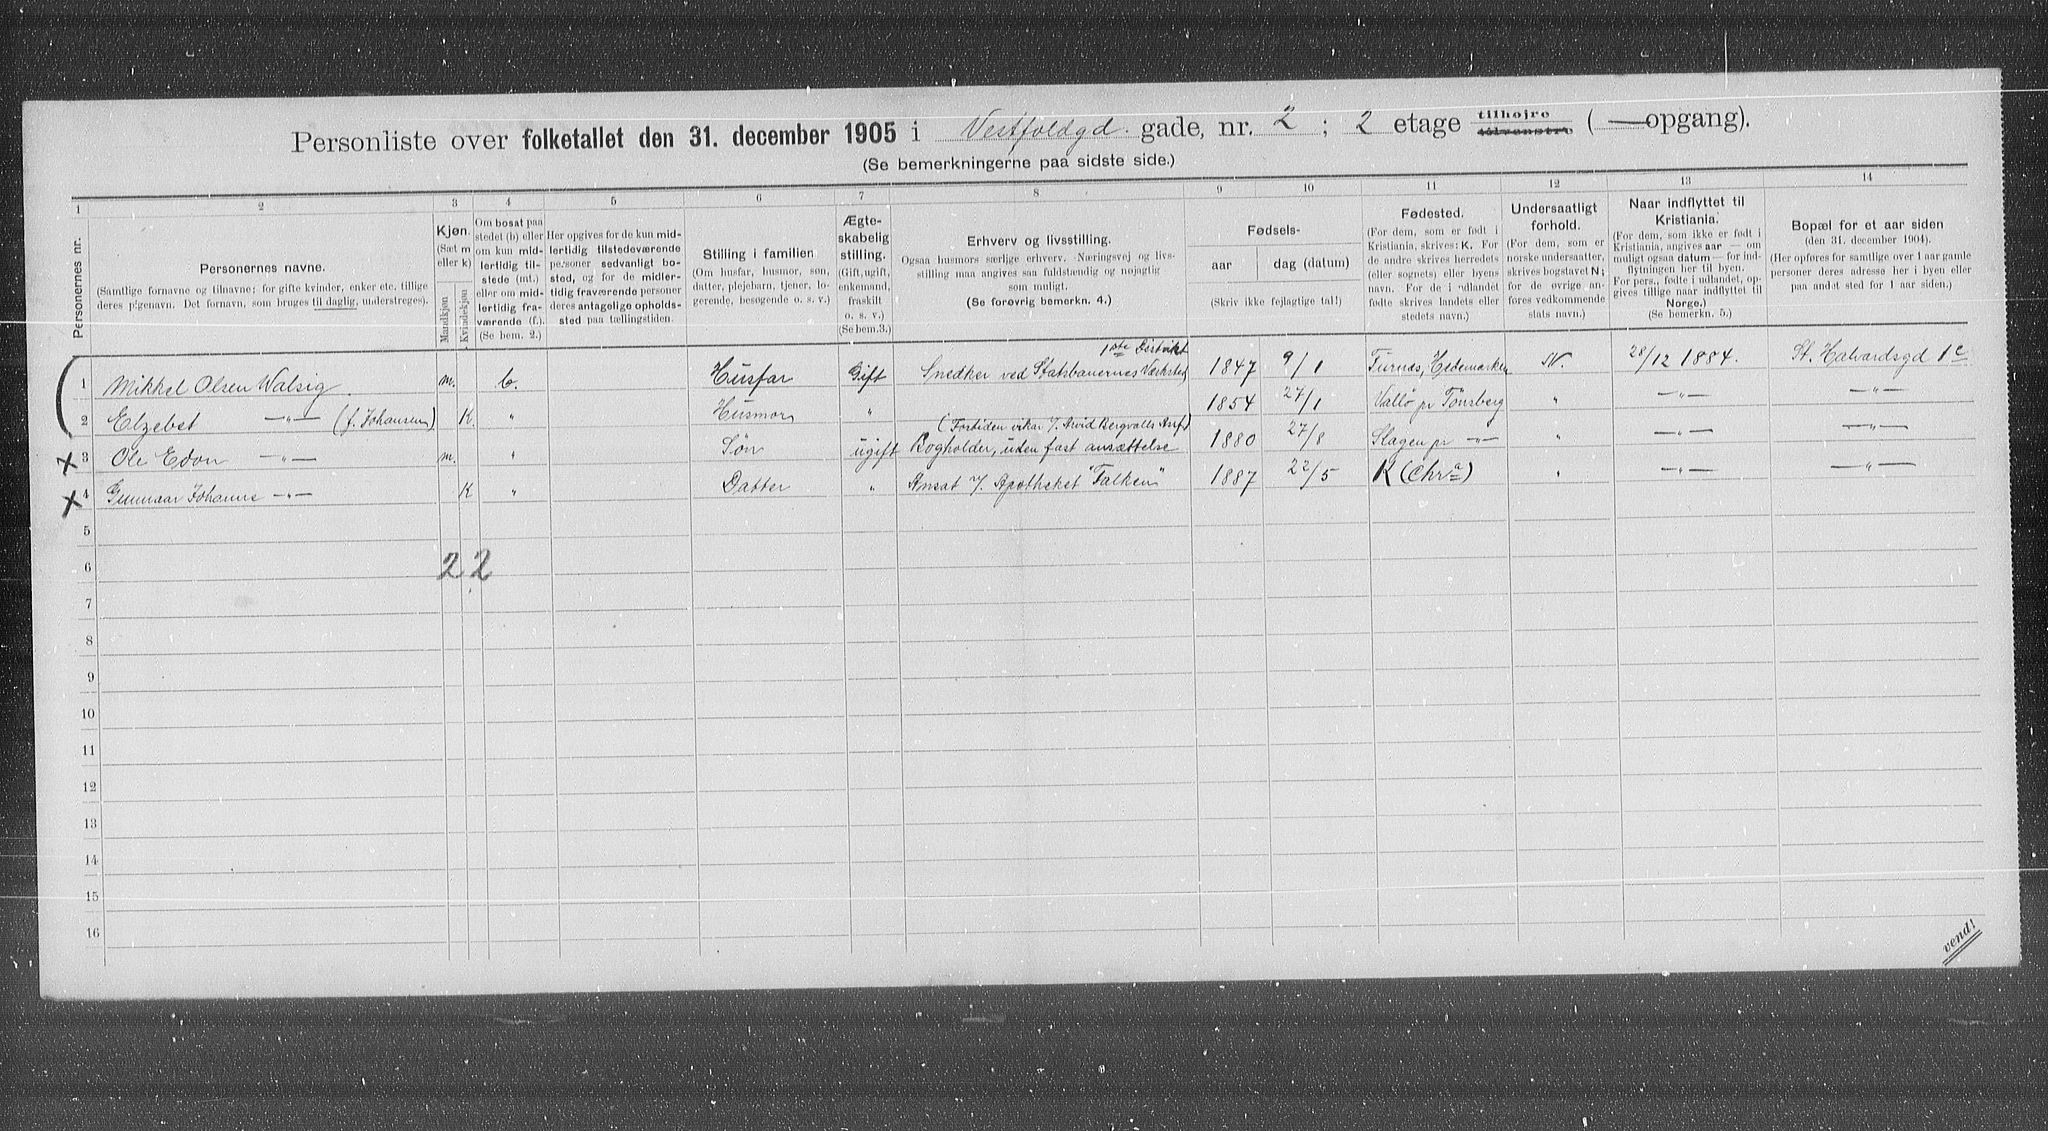 Personliste over folketallet den 31. december 1905 i Vestfoldgd. gade, nr. 2 ; 2 etage tilhøjre tilvenstre ( — opgang).
(Se bemerkningerne paa sidste side.)
1 2 3 4 5 6 7 8 9 10 11 12 13 14
Personernes nr.
Personernes navne.
(Samtlige fornavne og tilnavne; for gifte kvinder, enker etc. tillige
deres pigenavn. Det fornavn, som bruges til daglig, understreges).
Kjøn.
(Sæt m
eller k)
Mandkjøn
Kvindekjøn
Om bosat paa
stedet (b) eller
om kun mid-
lertidig til-
stede (mt.)
eller om mid-
lertidig fra-
værende (f.).
(Se bem. 2.)
Her opgives for de kun mid-
lertidig tilstedeværende
personer sedvanlig bo-
sted, og for de midler-
tidig fraværende personer
deres antagelige opholds-
sted paa tællingstiden.
Stilling i familien
(Om husfar, husmor, søn,
datter, plejebarn, tjener, lo-
gerende, besøgende o. s. v.)
Ægte-
skabelig
stilling.
(Gift, ugift,
enkemand,
fraskilt
o. s. v.)
(Se bem.3.)
Erhverv og livsstilling.
Ogsaa husmors særlige erhverv. Næringsvej og livs-
stilling maa angives saa fuldstændig og nøjagtig
som muligt.
(Se forøvrig bemerkn. 4.)
Fødsels-
aar
dag (datum)
(Skriv ikke fejlagtige tal!)
Fødested.
(For dem, som er født i
Kristiania, skrives: K. For
de andre skrives herredets
(eller sognets) eller byens
navn. For de i udlandet
fødte skrives landets eller
stedets navn.)
Undersaatligt
forhold.
(For dem, som er
norske undersaatter,
skrives bogstavet N;
for de øvrige an-
føres vedkommende
stats navn.)
Naar indflyttet til
Kristiania.
(For dem, som ikke er født i
Kristiania, angives aar — om
muligt ogsaa datum — for ind-
flytningen her til byen.
For pers., fødte i udlandet, op-
gives tillige naar indflyttet til
Norge.)
(Se bemerkn. 5.)
Bopæl for et aar siden
(den 31. december 1904).
(Her opføres for samtlige over 1 aar gamle
personer deres adresse her i byen eller
paa andet sted for 1 aar siden.)
1 Mikkel Olsen Walsig m. b. Husfar Gift Snedker ved Statsbanernes Værksted 1ste Distrikt 1847 9/1 Furnes, Hedemarken N. 28/12 1884. St. Halvardsgd 1c
2 Elzebet —"— (f. Johansen) K. " Husmor " 1854 27/1 Vallø pr Tønsberg " —"— —"—
(Fortiden vikar v/ Arvid Bergvalls Asf)
3 Ole Edon —"— m. " Søn ugift Bogholder, uden fast ansættelse 1880 27/8 Slagen pr —"— " —"— —"—
4 Gunnaar Johanne —"— K " Datter " Ansat v/ Apotheket "Falken" 1887 22/5 K (Chr.a) " —"— —"—
5
6 2 2
7
8
9
10
11
12
13
14
15
16
vend!